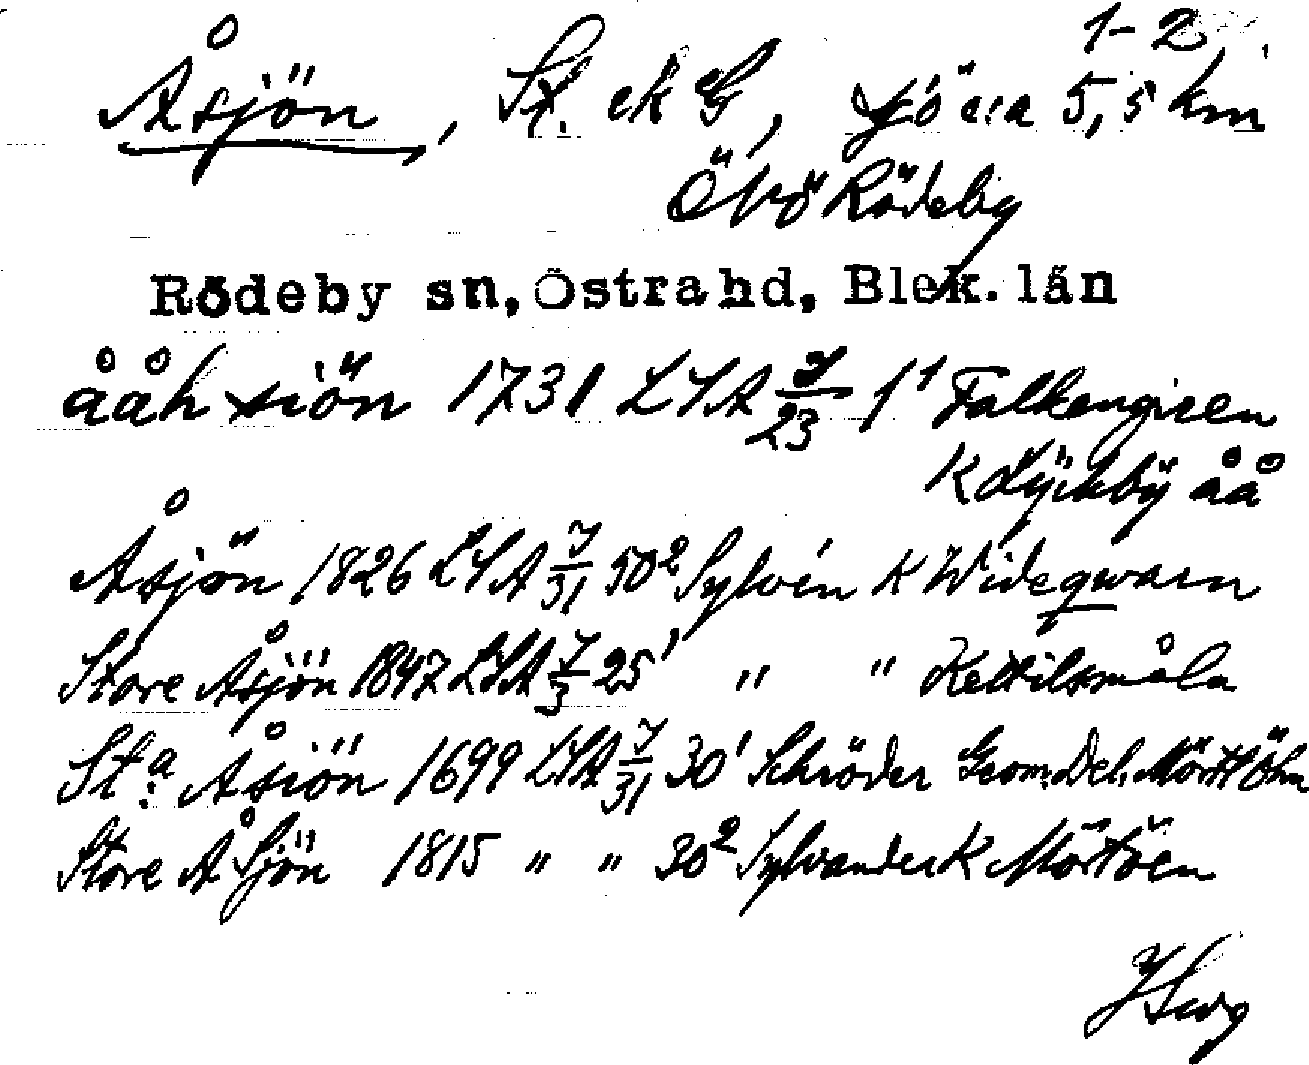 1-2
Åsjön, St. ek G, sjö c:a 5,5 km
ÖNÖ Rödeby
Rödeby sn, Östra hd, Blek. län
ååh siön 1731 LSA J/23 1¹ Falkengreen
K Lÿckbÿ åå
Åsjön 1826 LSA J/31 50² Sylvén K Wideqwarn
Store Åsjön 1847 LSA J/3 25¹ " " Kettilsmåla
St:a Åsiön 1699 LSA J/31 30¹ Schröder Geom: Del. Mörtt Öhn
Store ÅSjön 1815 " " 30² Sylvander K Mörtöen